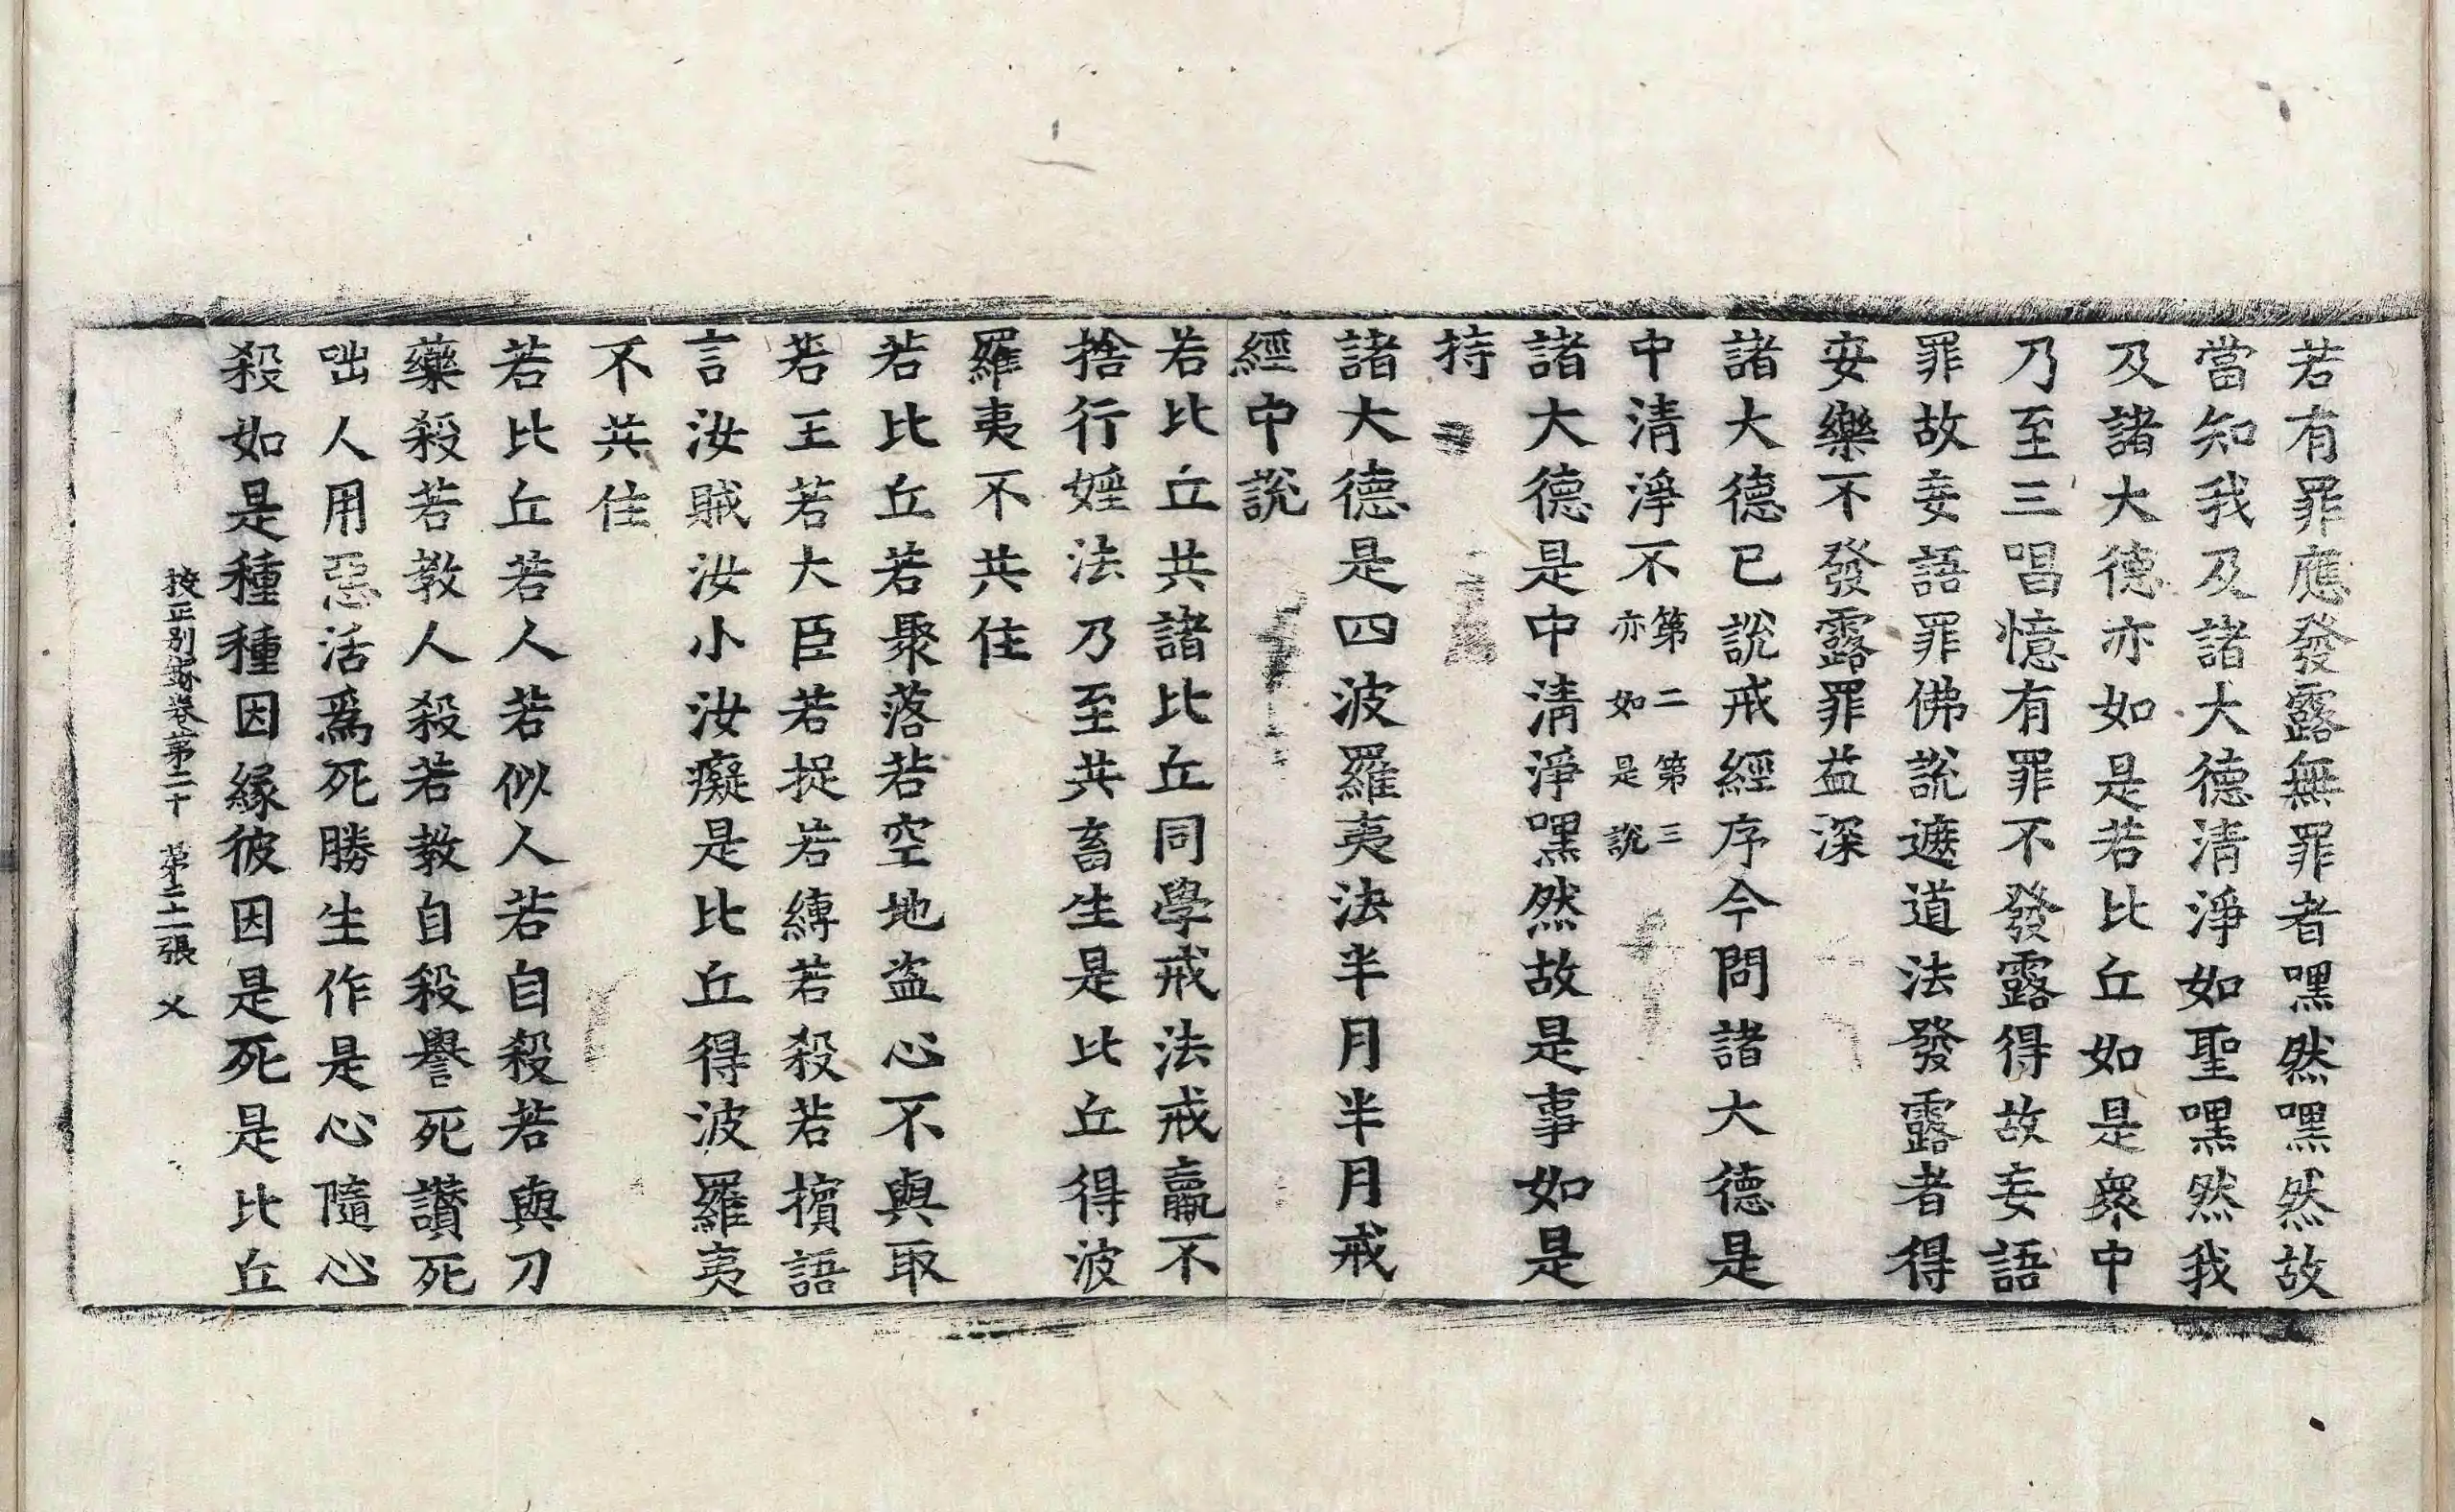 若有罪應發露無罪者嘿然嘿然故
當知我及諸大德清淨如聖嘿然我
及諸大德亦如是若比丘如是衆中
乃至三唱憶有罪不發露得故妄語
罪故妄語罪佛說遮道法發露者得
安樂不發露罪益深
諸大德已說戒經序今問諸大德是
中清淨不第二第三亦如是說
諸大德是中清淨嘿然故是事如是
持
諸大德是四波羅夷法半月半月戒
經中說
若比丘共諸比丘同學戒法戒羸不
捨行婬法乃至共畜生是比丘得波
羅夷不共住
若比丘若聚落若空地盜心不與取
若王若大臣若捉若縛若殺若擯語
言汝賊汝小汝癡是比丘得波羅夷
不共住
若比丘若人若似人若自殺若與刀
藥殺若教人殺若教自殺譽死讚死
咄人用惡活爲死勝生作是心隨心
殺如是種種因緣彼因是死是比丘
挍正別錄卷第二十 第二十二張 乂